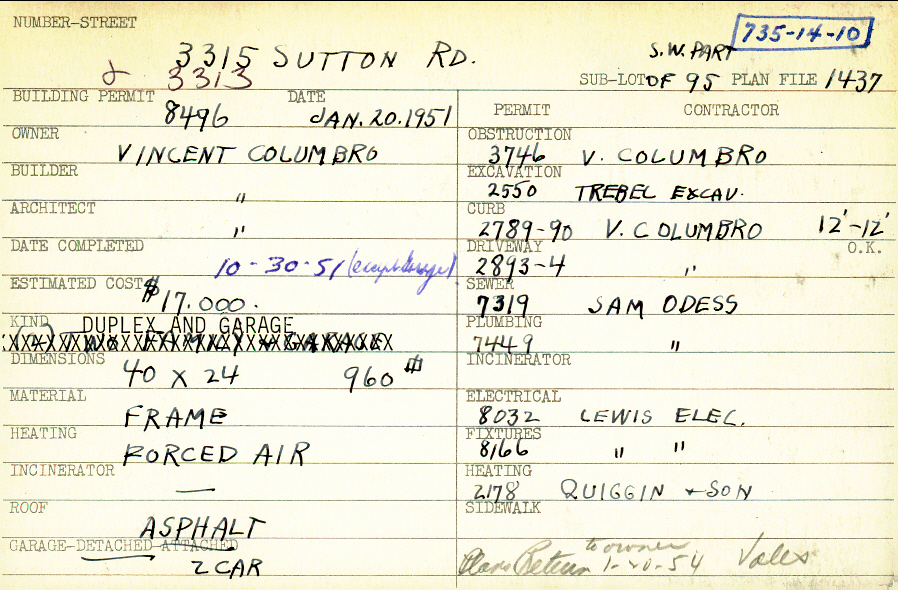 NUMBER-STREET
735-14-10
3315 SUTTON RD.
& 3313
S.W. PART
SUB-LOT OF 95 PLAN FILE 1437
BUILDING PERMIT DATE
8496 JAN. 20. 1951
OWNER
VINCENT COLUMBRO
BUILDER
"
ARCHITECT
"
DATE COMPLETED
10-30-51 (except Garage)
ESTIMATED COST
$17.000.
KIND DUPLEX AND GARAGE
DIMENSIONS
40 X 24 960
MATERIAL
FRAME
HEATING
FORCED AIR
INCINERATOR
—
ROOF
ASPHALT
GARAGE-DETACHED ATTACHED
2 CAR
PERMIT CONTRACTOR
OBSTRUCTION
3746 V. COLUMBRO
EXCAVATION
2550 TREBEL EXCAV.
CURB
2789-90 V. COLUMBRO 12'-12'
DRIVEWAY O.K.
2893-4 "
SEWER
7319 SAM ODESS
PLUMBING
7449 "
INCINERATOR
ELECTRICAL
8032 LEWIS ELEC.
FIXTURES
8166 " "
HEATING
2178 QUIGGIN + SON
SIDEWALK
to owner
Plans Return 54